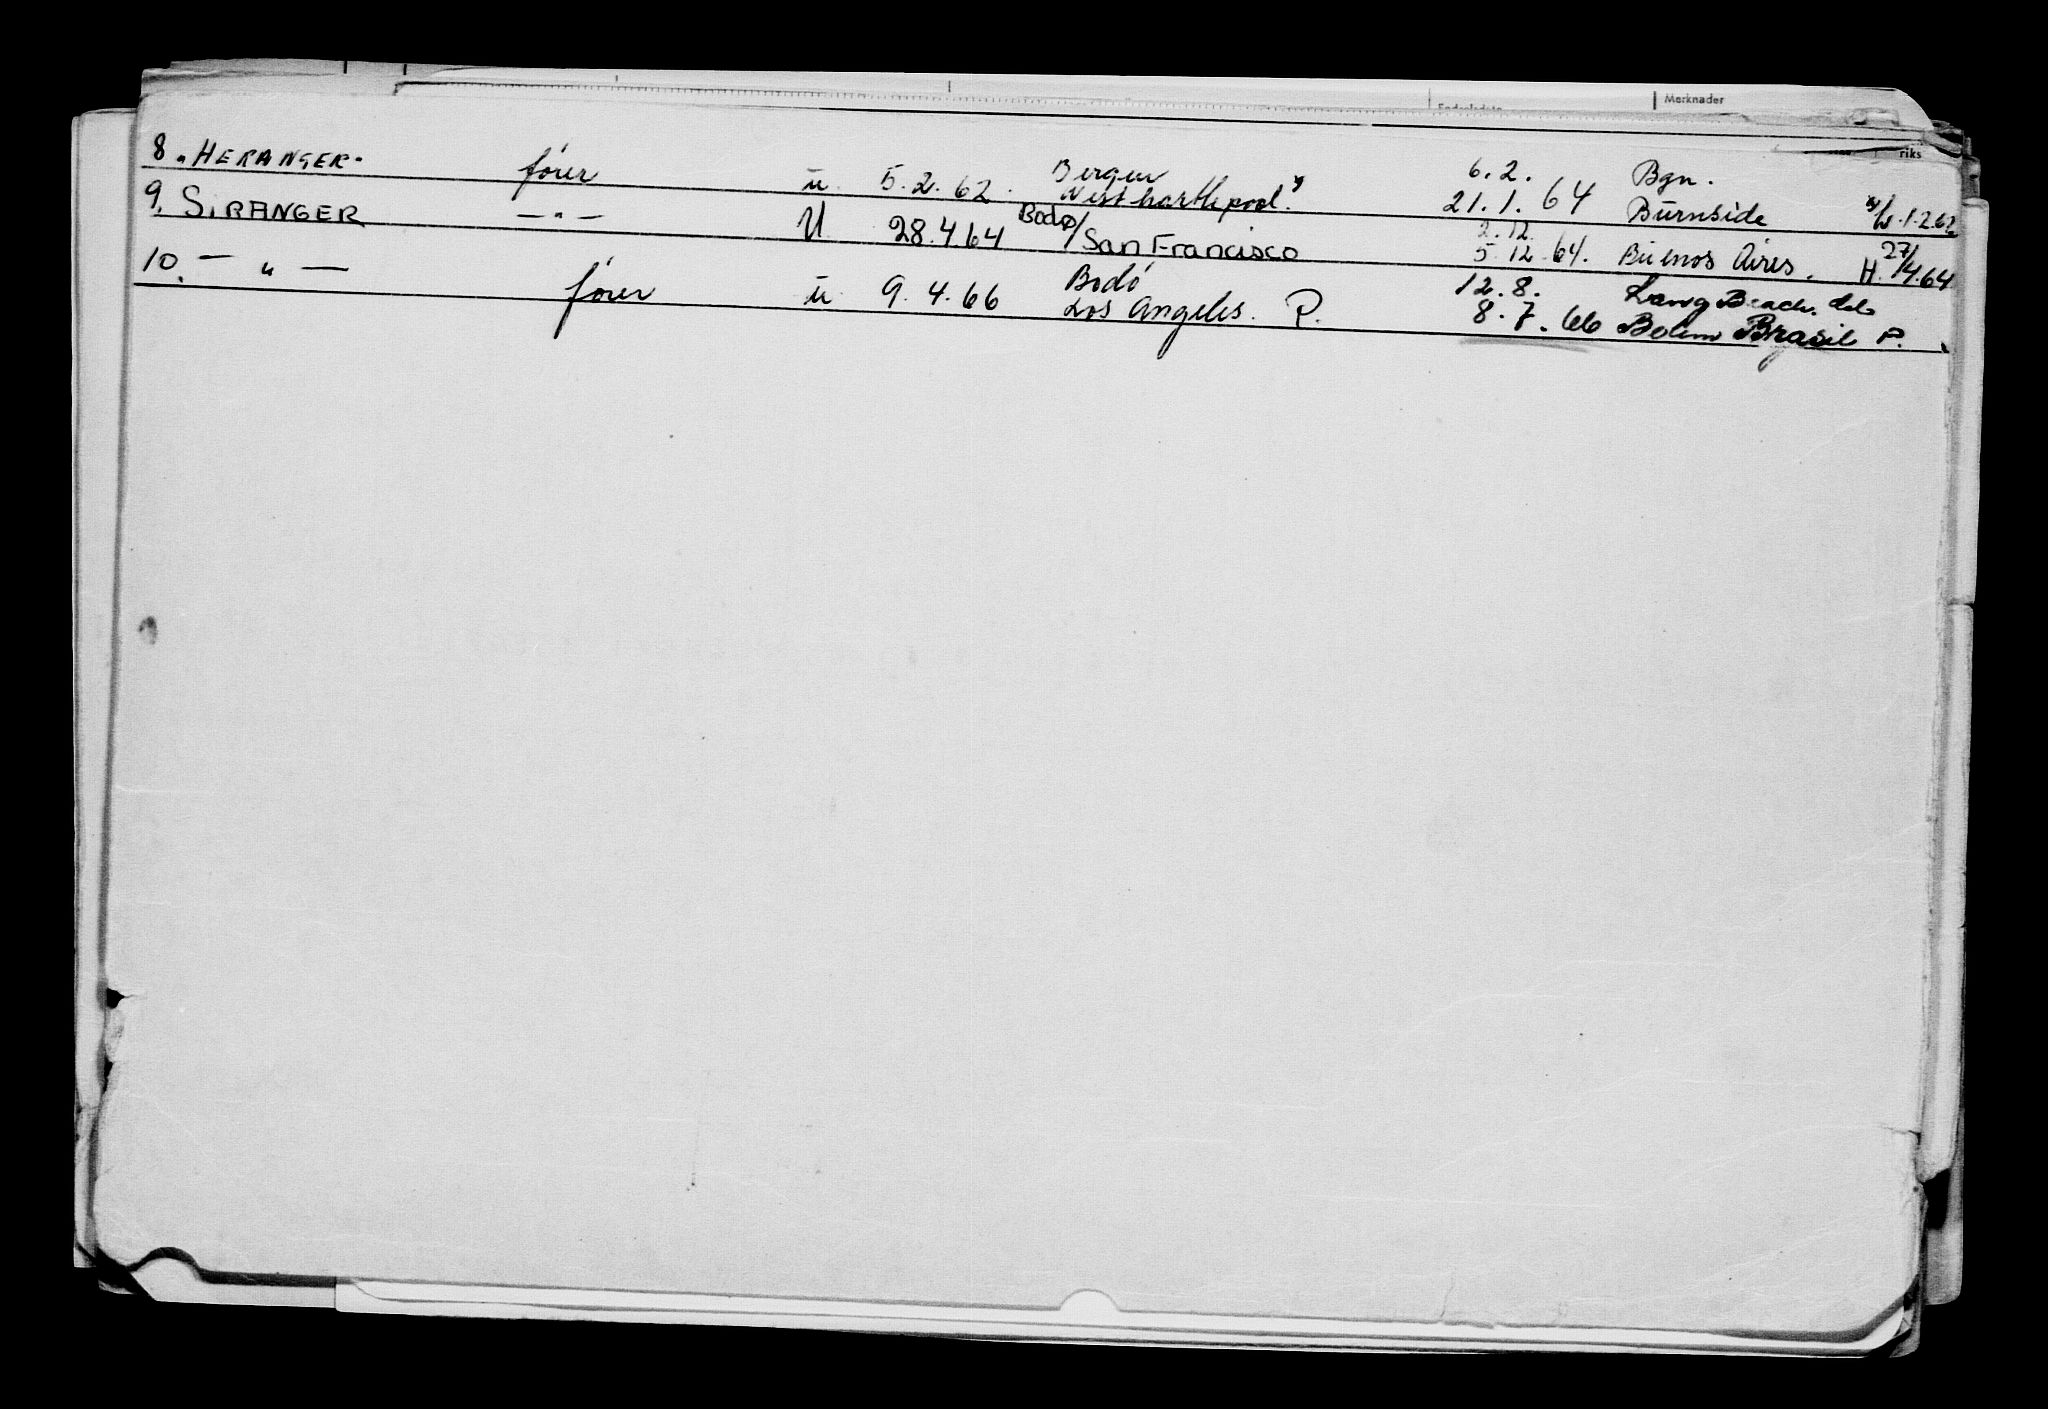 Merknader
riks
8 „HERANGER" fører u. 5.2.62. Bergen 6.2. Bgn.
Westhartlepool. 21.1.64 Burnside 1.2.62
9. SIRANGER — " — U 28.4 64 Bodø/San Francisco 2.12. 5.12.64. Buenos Aires. H. 27/4.64
10. — " — fører u 9.4.66 Bodó 12.8. Long Beach.
Los Angeles. P. 8.7.66 Belem Brasil P.